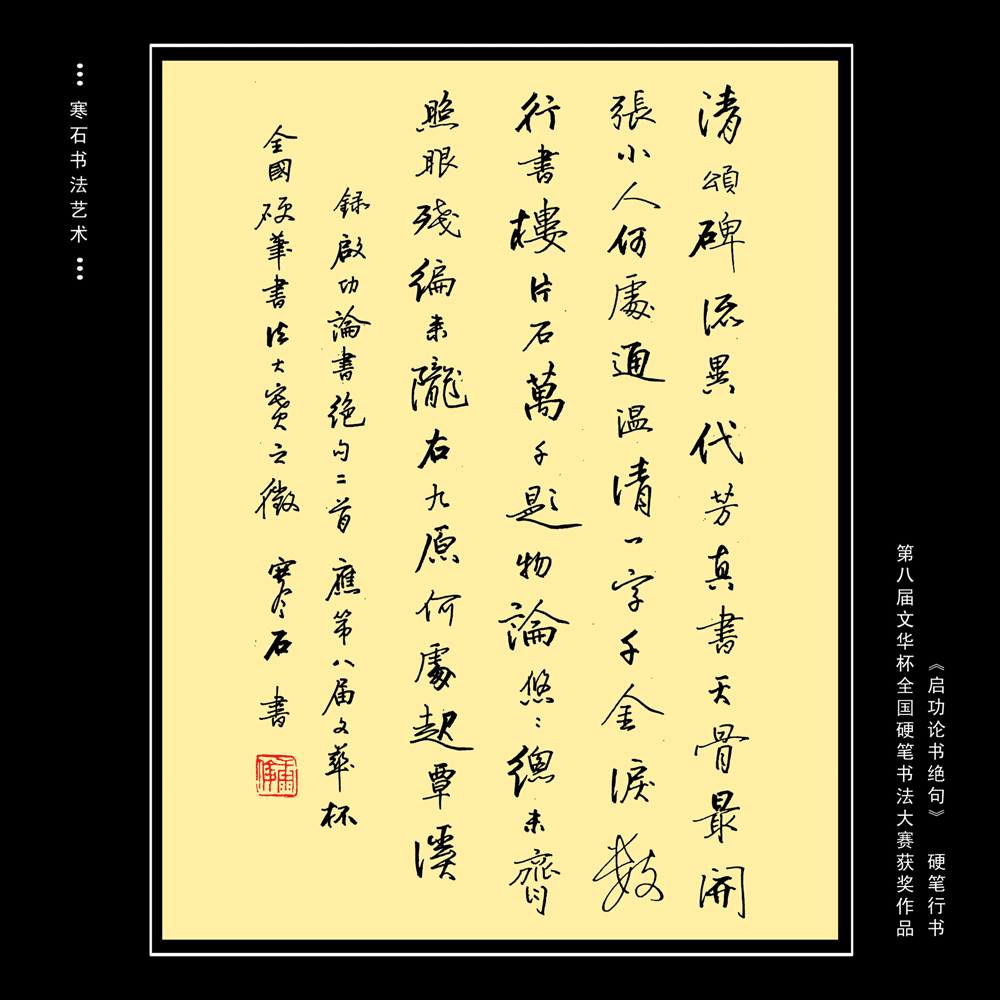 《启功论书绝句》 硬笔行书
第八届文华杯全国硬笔书法大赛获奖作品
清頌碑流異代芳真書天骨最開
張小人何處通温清一字千金淚數
行書樓片石萬千題物論悠〻總未齊
照眼殘編来隴右九原何處起覃溪
録啟功論書絶句二首應第八届文華杯
全國硬筆書法大賽之徵 寒石書
寒石书法艺术